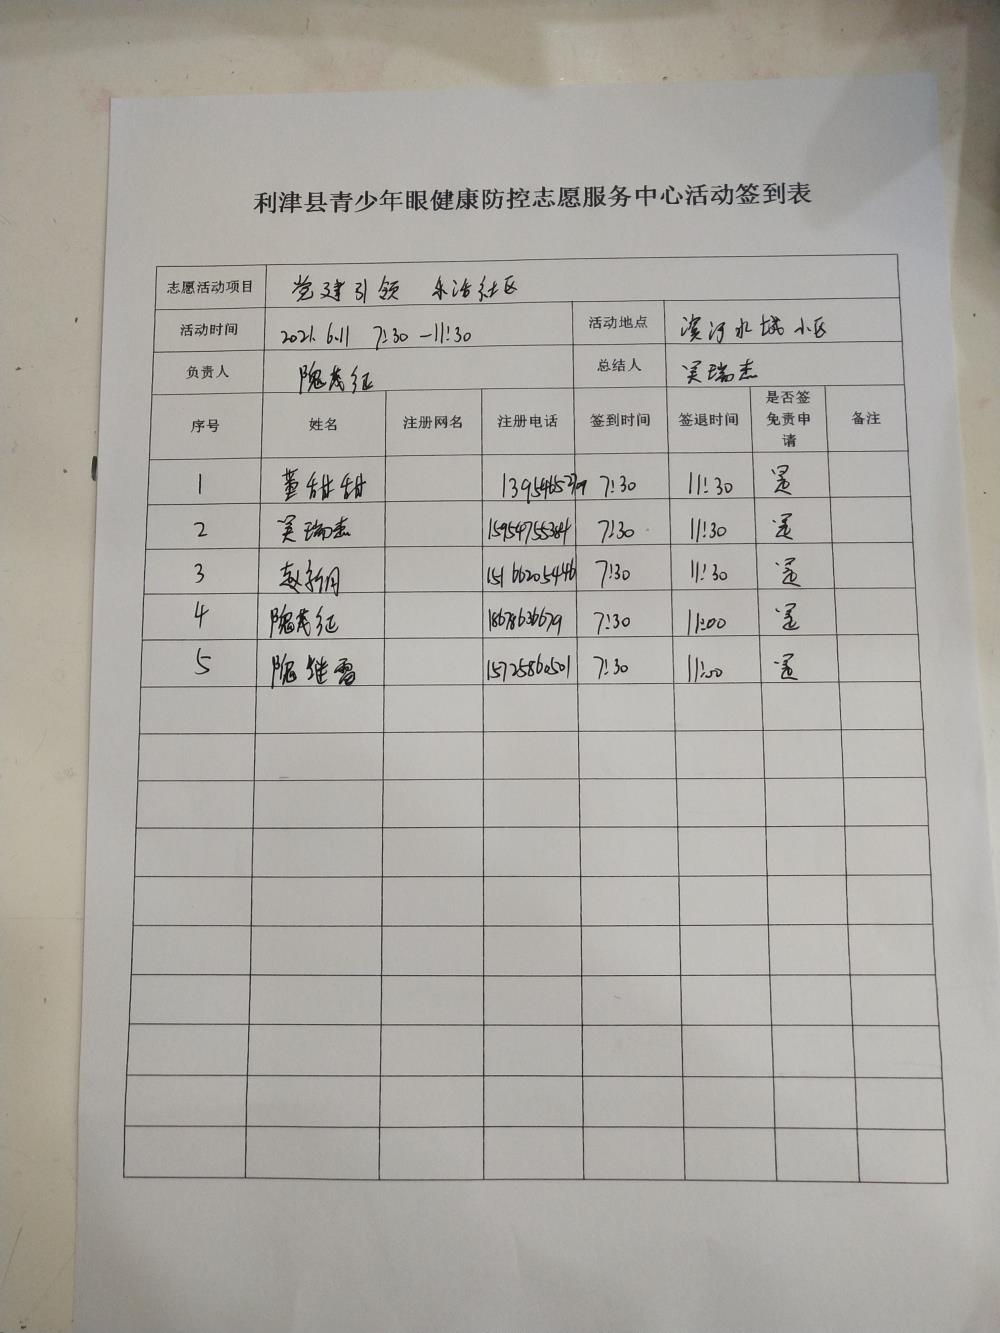 利津县青少年眼健康防控志愿服务中心活动签到表
志愿活动项目 党建引领 乐活社区
活动时间 2021.6.11 7:30-11:30 活动地点 滨河水城小区
负责人 隗茂征 总结人 吴瑞杰
序号 姓名 注册网名 注册电话 签到时间 签退时间 是否签免责申请 备注
1 董甜甜 7:30 11:30 是
2 吴瑞杰 15954755384 7:30 11:30 是
3 15166205446 7:30 11:30 是
4 隗茂征 18678636679 7:30 11:00 是
5 隗维雷 15725860501 7:30 11:00 是